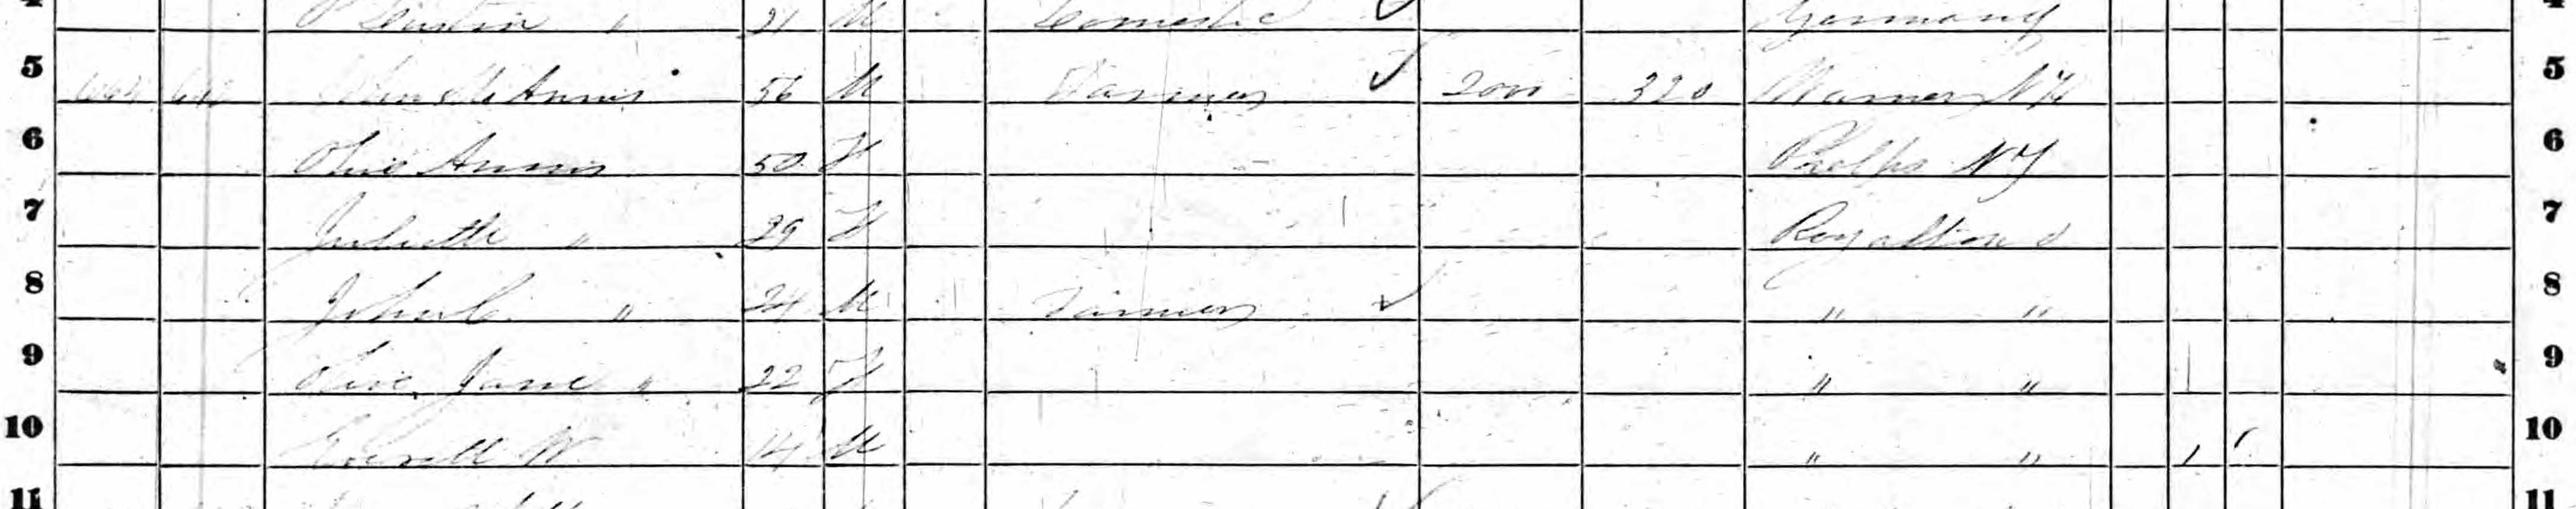 4 " 21 M Domestic Germany 4
5 Annis 56 M Farmer 2000 320 Warner NH 5
6 Olive Annis 50 F Phelps NY 6
7 Juliette " 29 F Royalton O 7
8 John C. " 24 M Farmer " " 8
9 Olive Jane " 22 F " " 9
10 Everett W 14 M " " 10
11 11